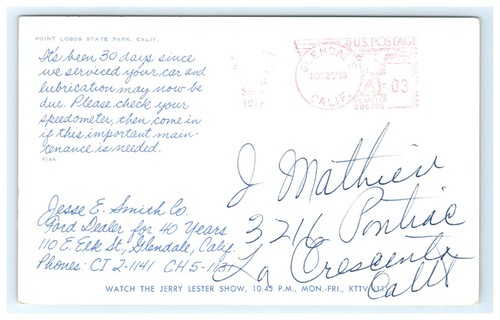 POINT LOBOS STATE PARK, CALIF.
It's been 30 days since
we serviced your car and
lubrication may now be
due. Please check your
speedometer, then come in
if this important main-
tenance is needed.
Jesse E. Smith Co.
Ford Dealer for 40 Years
110 E. Elk St., Glendale, Calif.
Phones: CI 2-1141 CH 5-1131
WATCH THE JERRY LESTER SHOW, 10:45 P.M., MON.-FRI., KTTV (11)
GLENDALE
CALIF.
U.S. POSTAGE
03
J Mathieu
3211 Pontiac
La Crescenta
Calif